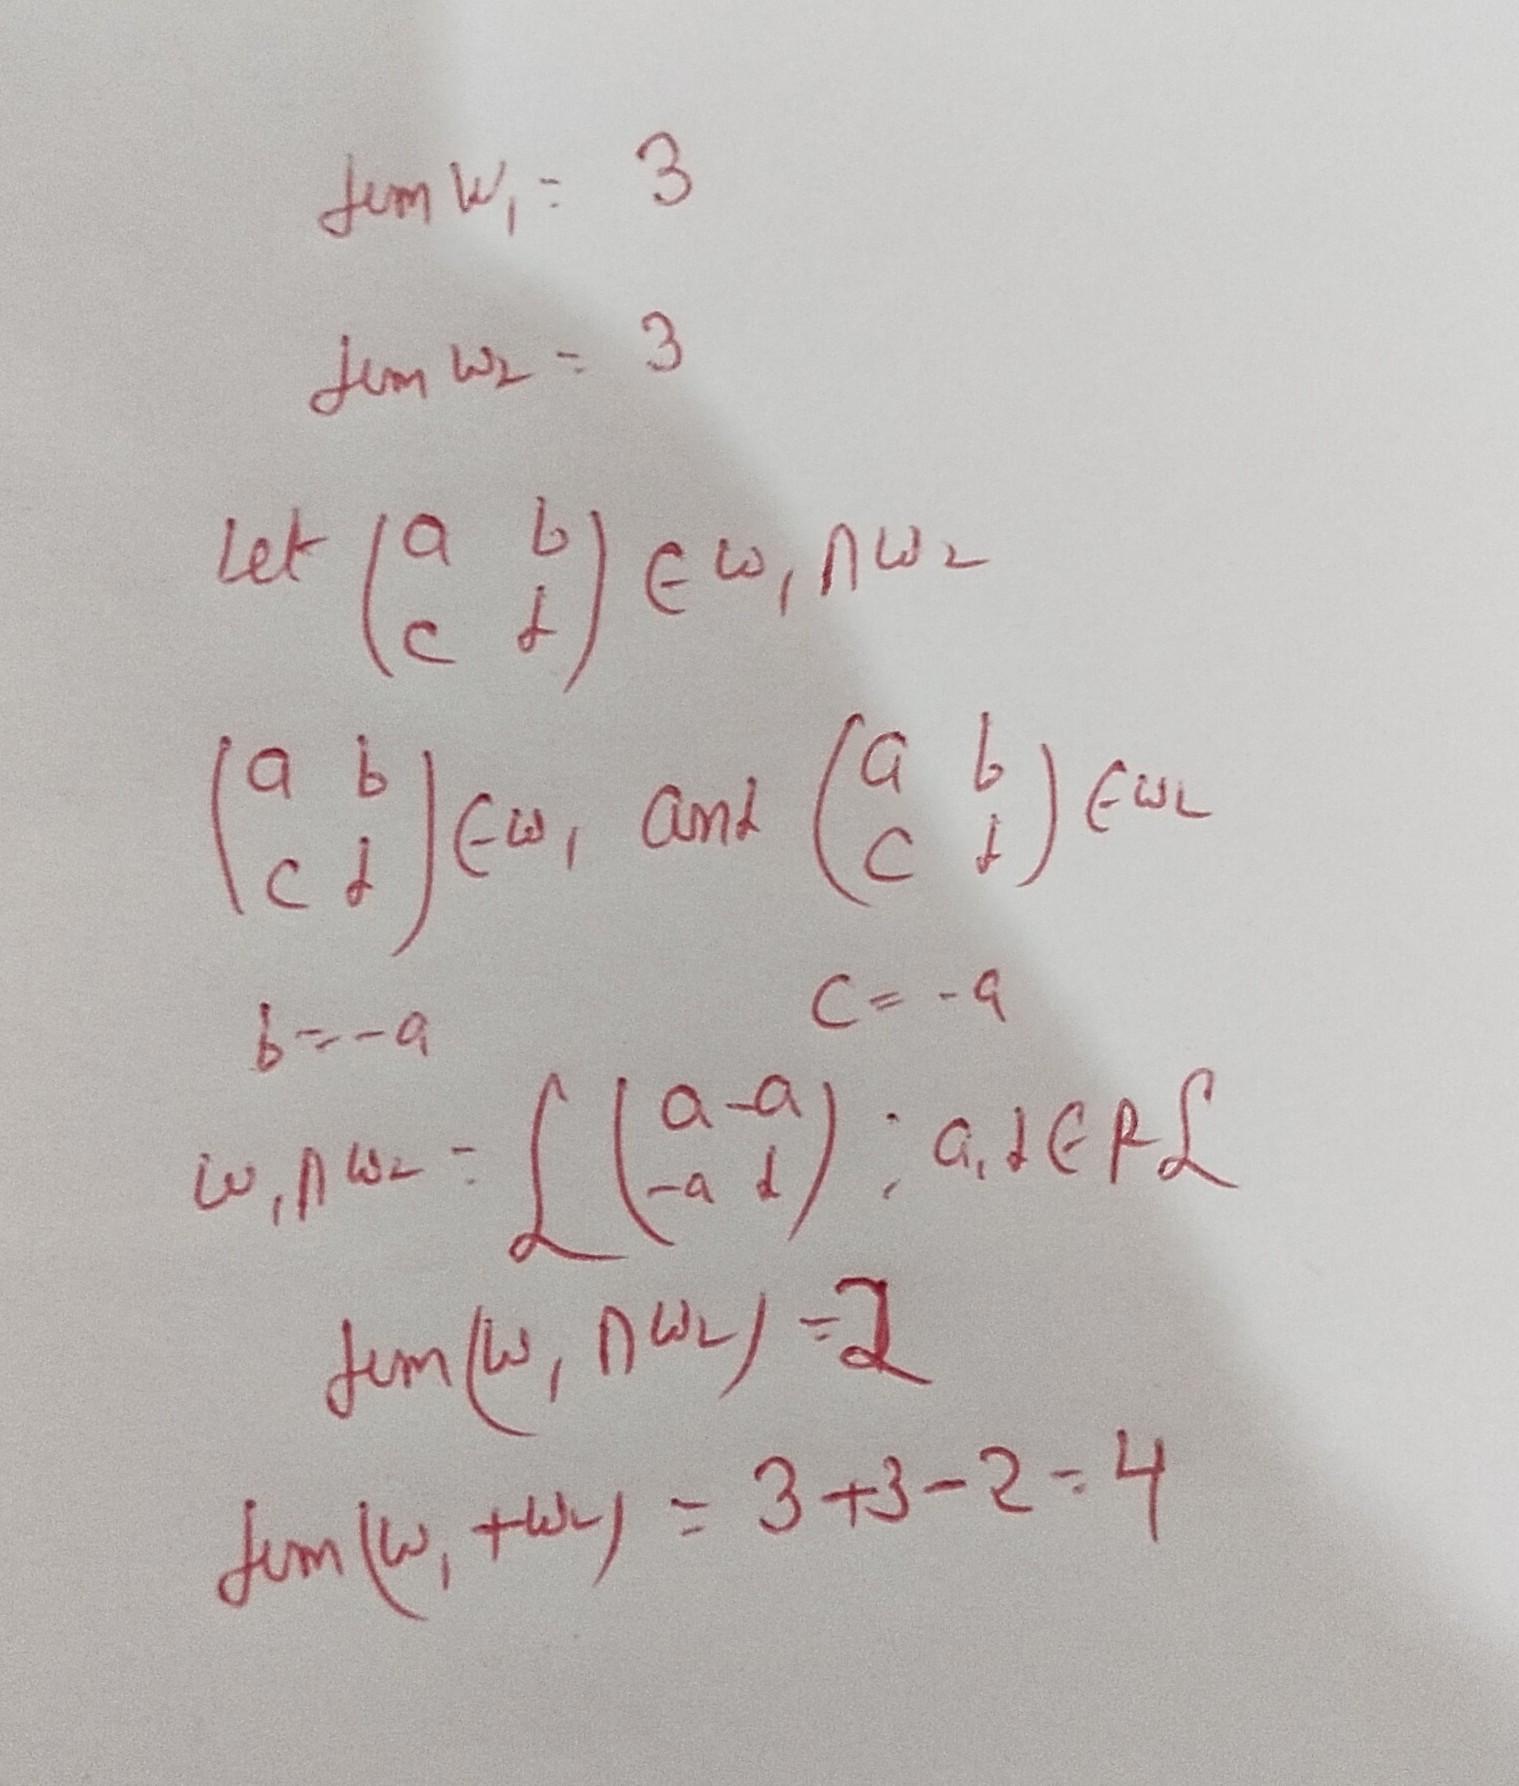 dim W₁ = 3
dim W₂ = 3
Let (a b
c d) ∈ W₁ ∩ W₂
(a b
c d) ∈ W₁ and (a b
c d) ∈ W₂
b = -a c = -a
W₁ ∩ W₂ = { (a -a
-a d) : a, d ∈ R }
dim (W₁ ∩ W₂) = 2
dim (W₁ + W₂) = 3 + 3 - 2 = 4